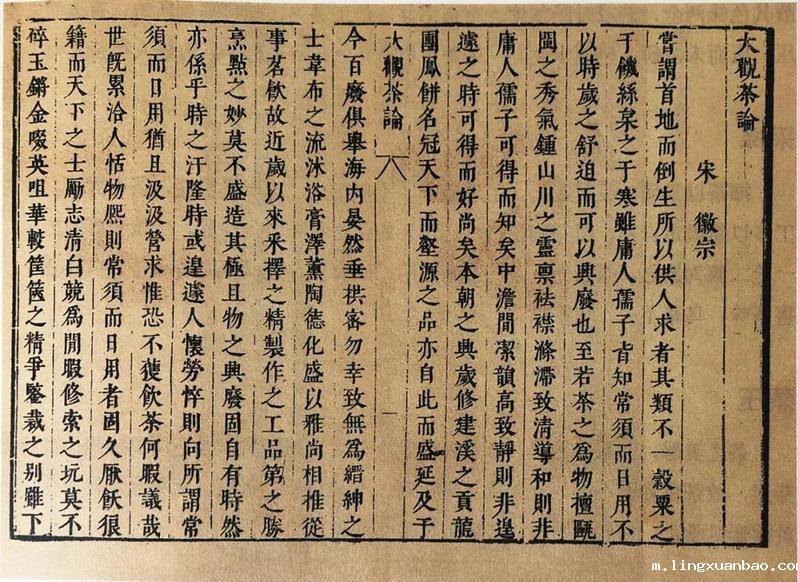 大觀茶論
宋 徽宗
嘗謂首地而倒生所以供人求者其類不一穀粟之
于饑絲枲之于寒雖庸人孺子皆知常須而日用不
以時歲之舒迫而可以興廢也至若茶之爲物擅甌
閩之秀氣鍾山川之靈禀祛襟滌滯致清導和則非
庸人孺子可得而知矣中澹閒潔韻高致靜則非遑
遽之時可得而好尚矣本朝之興歲修建溪之貢龍
團鳳餅名冠天下而壑源之品亦自此而盛延及于
大觀茶論 一
今百廢俱舉海内晏然垂拱宻勿幸致無爲縉紳之
士韋布之流沐浴膏澤薰陶德化盛以雅尚相推從
事茗飲故近歲以來采擇之精製作之工品第之勝
烹點之妙莫不盛造其極且物之興廢固自有時然
亦係乎時之汙隆時或遑遽人懷勞悴則向所謂常
須而日用猶且汲汲營求惟恐不獲飲茶何暇議哉
世旣累洽人恬物熙則常須而日用者固久厭飫狼
籍而天下之士勵志清白競爲閒暇修索之玩莫不
碎玉鏘金啜英咀華較筐篋之精爭鑒裁之别雖下
m.lingxuanbao.com